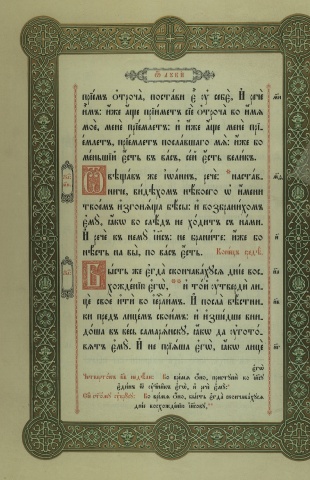 Ѿ лꙋкѝ
прїе́мъ ѻ҆троча̀, поста́ви є҆̀ ᲂу҆ себє̀, И҆ речѐ
и҆̀мъ: и҆́же а҆́ще прїи́метъ сїѐ ѻ҆троча̀ во и҆́мѧ
моѐ, менѐ прїе́млетъ: и҆ и҆́же а҆́ще менѐ прї-
е́млетъ, прїе́млетъ посла́вшаго мѧ̀: и҆́же бо
ме́ньшїй є҆́сть въ ва́съ, се́й є҆́сть вели́къ.
Ѿвѣща́въ же і҆ѡа́ннъ, речѐ: наста́в-
ниче, ви́дѣхомъ нѣ́коего ѡ҆ и҆́мени
твое́мъ и҆згонѧ́ща бѣ́сы: и҆ возбрани́хомъ
є҆мꙋ̀, ꙗ҆́кѡ во слѣ́дъ не хо́дитъ съ на́ми.
И҆ речѐ къ немꙋ̀ і҆и҃съ: не брани́те: и҆́же бо
нѣ́сть на вы̀, по ва́съ є҆́сть. Коне́цъ средѣ̀.
Бы́сть же є҆гда̀ скончава́хꙋсѧ дні́е вос-
хожде́нїю є҆гѡ̀, и҆ то́й ᲂу҆твердѝ ли-
цѐ своѐ и҆тѝ во і҆ерⷭ҇ли́мъ. И҆ посла̀ вѣ́стни-
ки пред̾ лице́мъ свои́мъ: и҆ и҆зше́дше вни-
до́ша въ ве́сь самарѧ́нскꙋ, ꙗ҆́кѡ да ᲂу҆гото́-
вѧтъ є҆мꙋ̀. И҆ не прїѧ́ша є҆гѡ̀, ꙗ҆́кѡ лицѐ
є҆гѡ̀
Во вре́мѧ ѻ҆́но, пристꙋпѝ ко і҆и҃сꙋ
є҆ди́нъ ѿ ᲂу҆чени́къ є҆гѡ̀, и҆ речѐ є҆мꙋ̀:
Во вре́мѧ ѻ҆́но, бы́сть є҆гда̀ скончава́хꙋсѧ
дні́е восхожде́нїю і҆и҃сову,